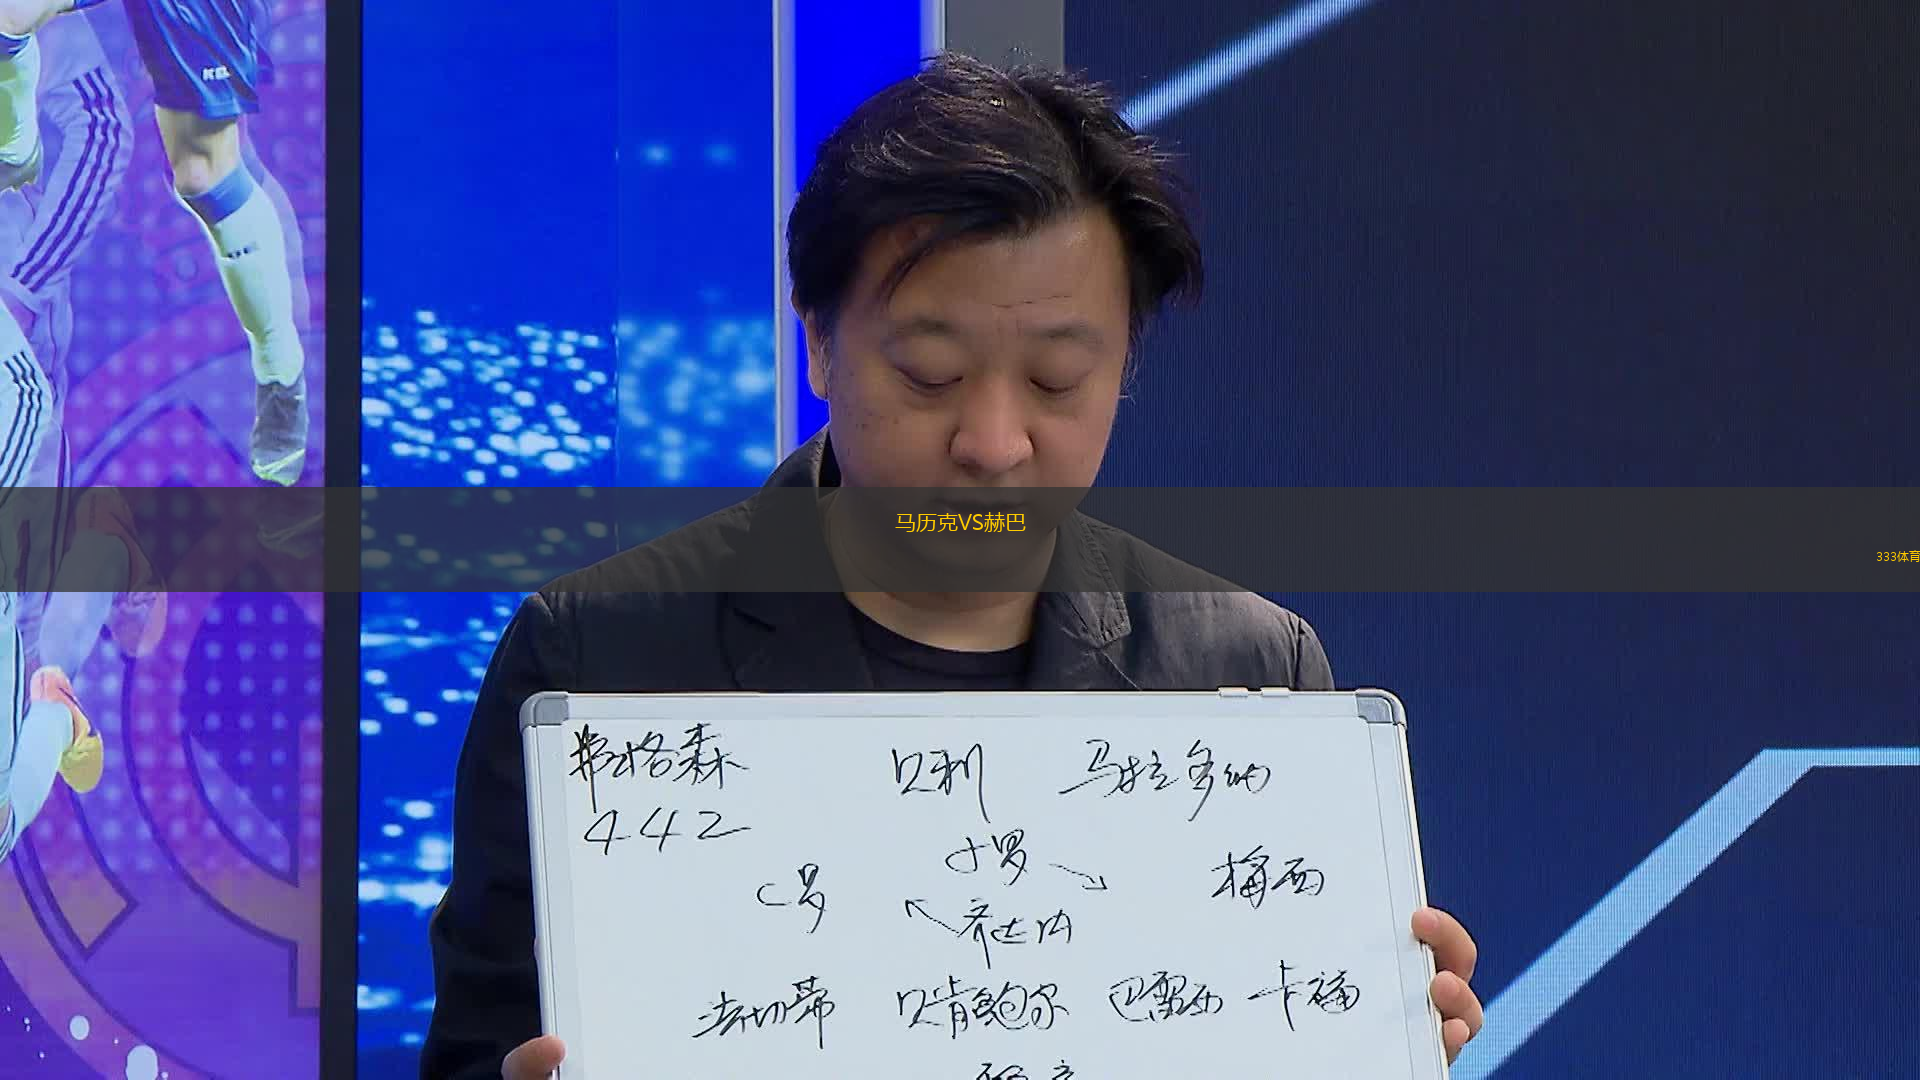 马历克VS赫巴
333体育
弗格森 贝利 马拉多纳
442
小罗
C罗 梅西
齐达内
法切蒂 贝肯鲍尔 巴雷西 卡福